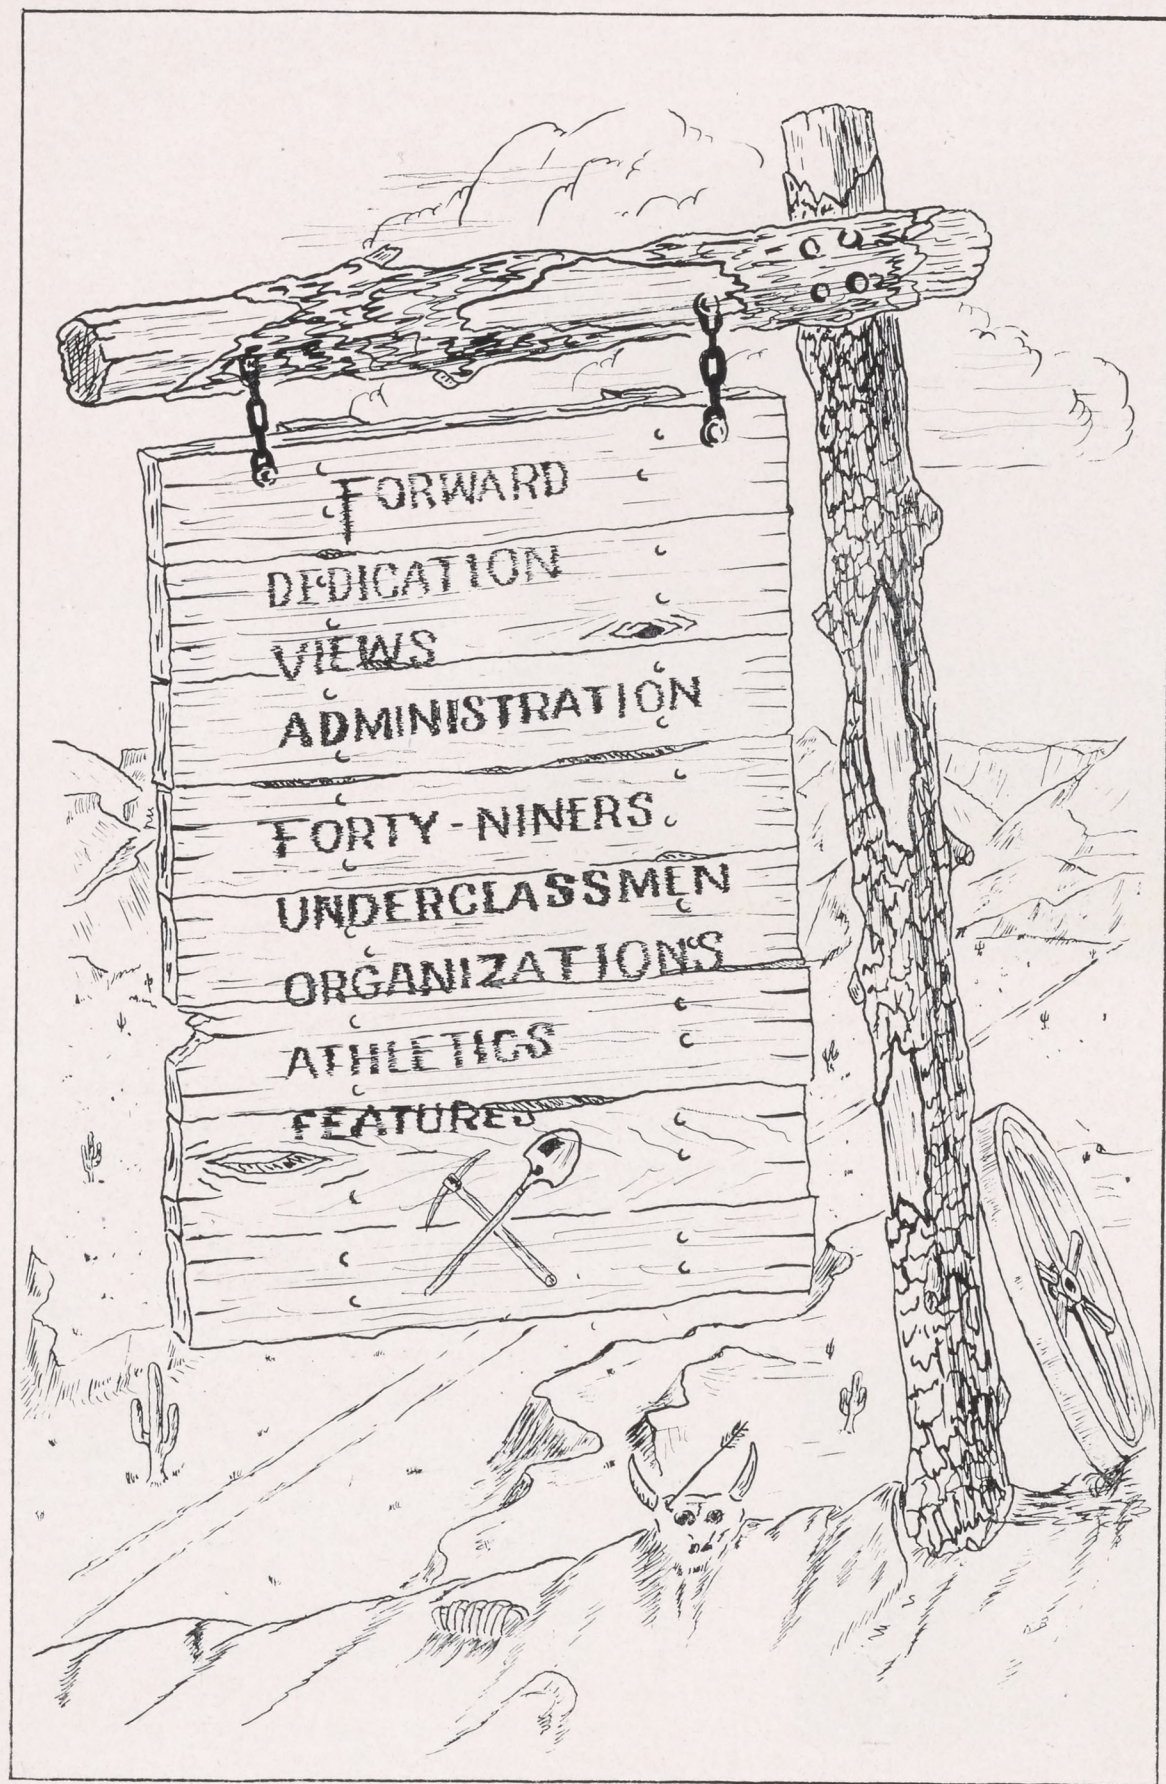 FORWARD
DEDICATION
VIEWS
ADMINISTRATION
FORTY-NINERS
UNDERCLASSMEN
ORGANIZATIONS
ATHLETICS
FEATURES